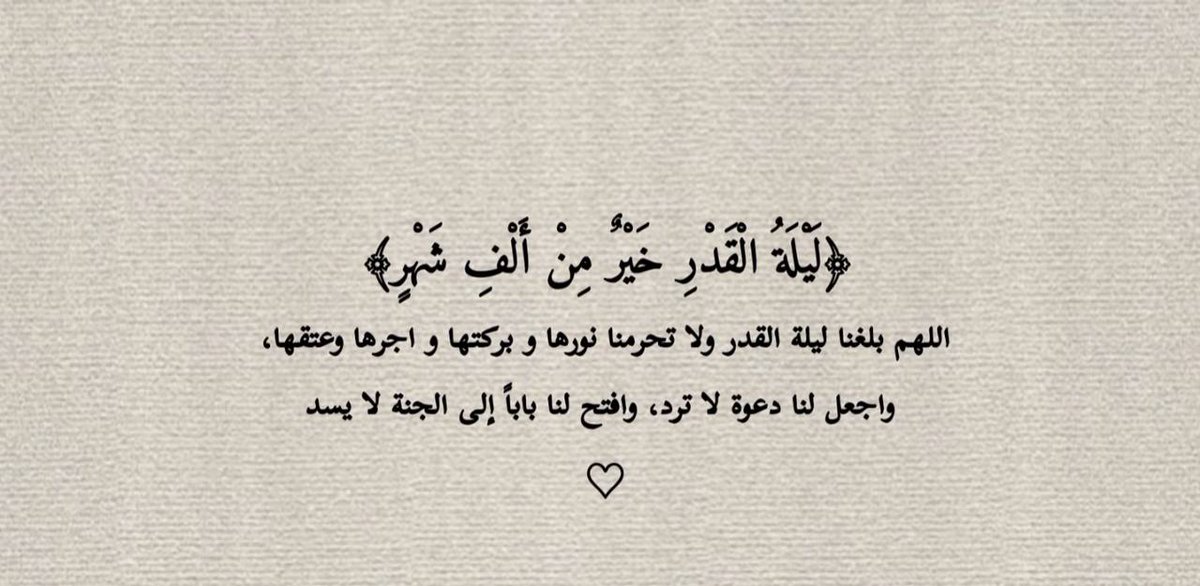 ﴿لَيْلَةُ الْقَدْرِ خَيْرٌ مِنْ أَلْفِ شَهْرٍ﴾
اللهم بلغنا ليلة القدر ولا تحرمنا نورها و بركتها و اجرها وعتقها،
واجعل لنا دعوة لا ترد، وافتح لنا باباً إلى الجنة لا يسد
♡